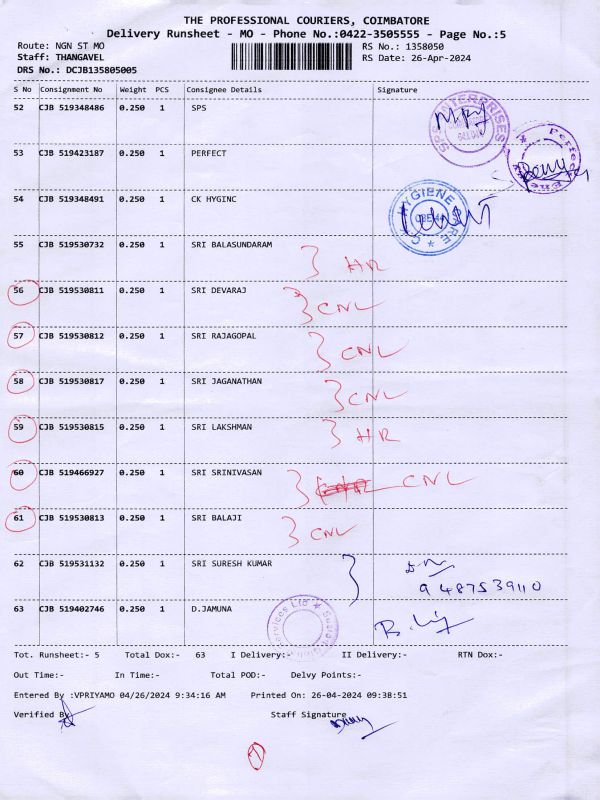 THE PROFESSIONAL COURIERS, COIMBATORE
Delivery Runsheet - MO - Phone No.:0422-3505555 - Page No.:5
Route: NGN ST MO RS No.: 1358050
Staff: THANGAVEL RS Date: 26-Apr-2024
DRS No.: DCJB135805005
S No Consignment No Weight PCS Consignee Details Signature
52 CJB 519348486 0.250 1 SPS
SPS ENTERPRISES
53 CJB 519423187 0.250 1 PERFECT
Perfect
54 CJB 519348491 0.250 1 CK HYGINC
HYGIENE
55 CJB 519530732 0.250 1 SRI BALASUNDARAM
HR
56 CJB 519530811 0.250 1 SRI DEVARAJ
CNL
57 CJB 519530812 0.250 1 SRI RAJAGOPAL
CNL
58 CJB 519530817 0.250 1 SRI JAGANATHAN
CNL
59 CJB 519530815 0.250 1 SRI LAKSHMAN
HR
60 CJB 519466927 0.250 1 SRI SRINIVASAN
CNL
61 CJB 519530813 0.250 1 SRI BALAJI
CNL
62 CJB 519531132 0.250 1 SRI SURESH KUMAR
9487539110
63 CJB 519402746 0.250 1 D.JAMUNA
Services Ltd
Tot. Runsheet:- 5 Total Dox:- 63 I Delivery:- II Delivery:- RTN Dox:-
Out Time:- In Time:- Total POD:- Delvy Points:-
Entered By :VPRIYAMO 04/26/2024 9:34:16 AM Printed On: 26-04-2024 09:38:51
Verified By Staff Signature